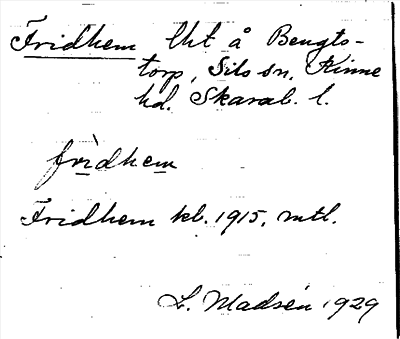 Fridhem lht å Bengts-
torp, Sils sn, Kinne
hd. Skarab. l.
fridhem
Fridhem kl. 1915, mtl.
L. Madsén 1929